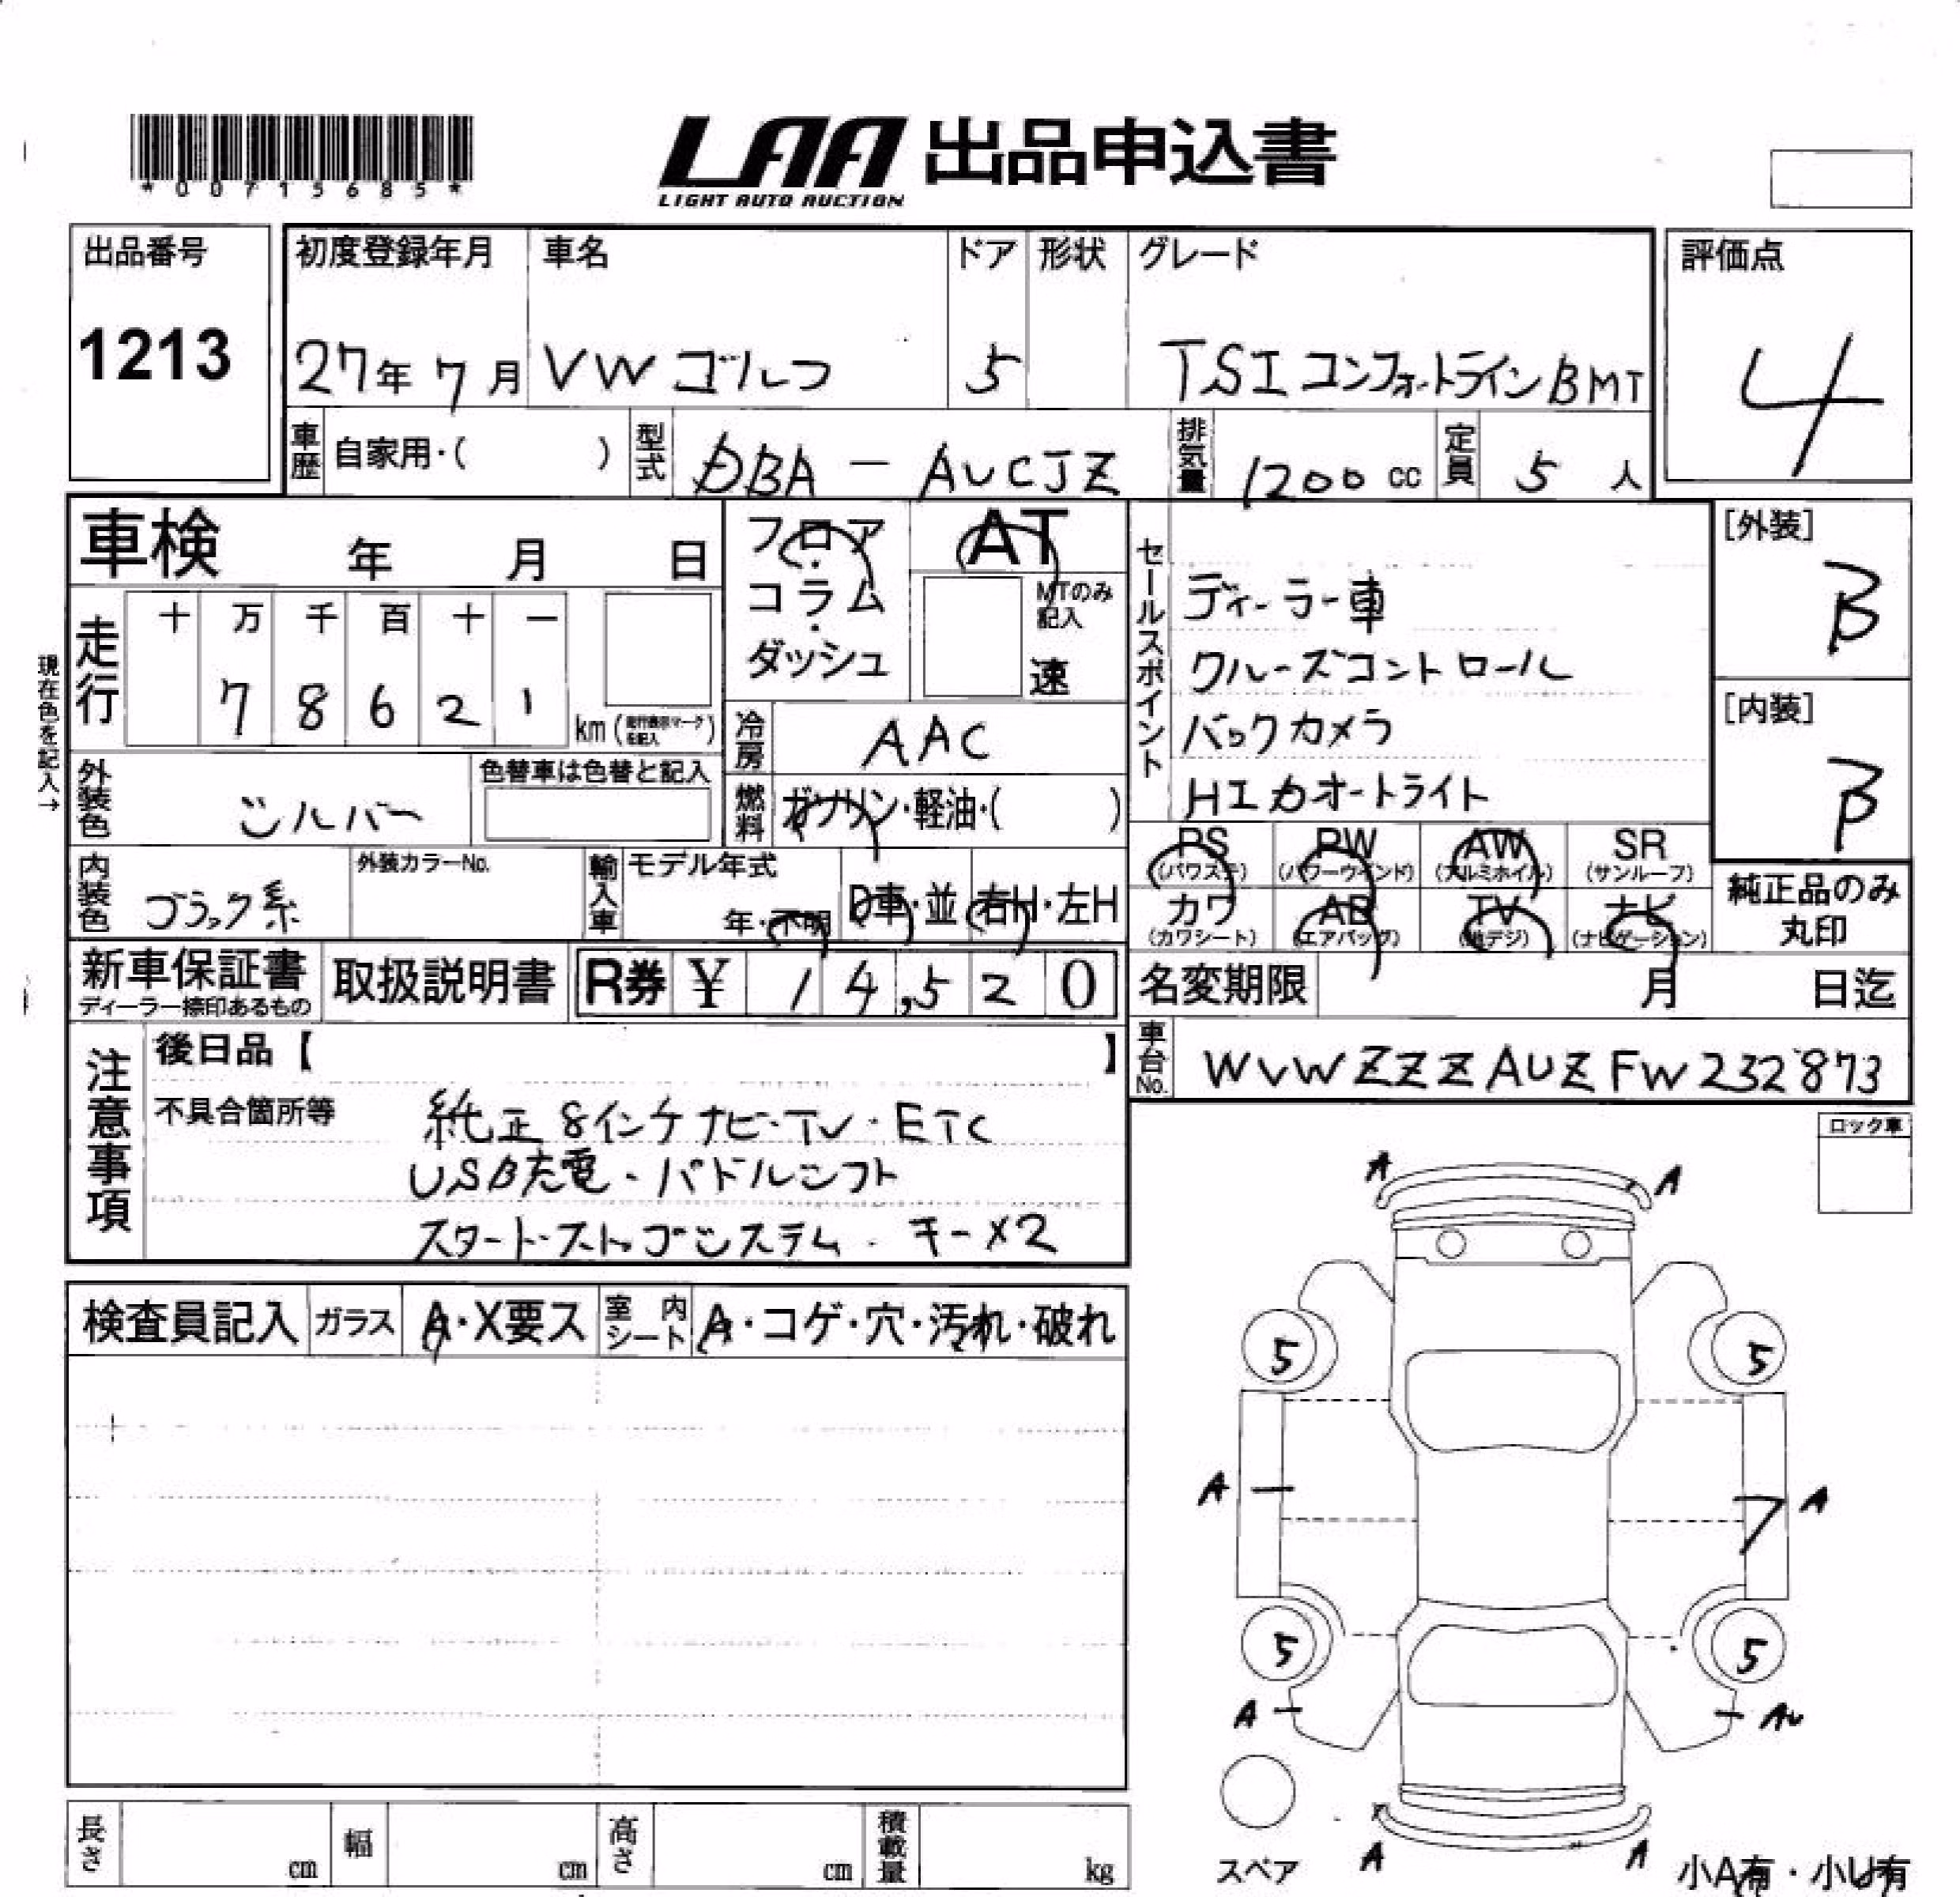 *00715685*
LAA 出品申込書
LIGHT AUTO AUCTION
出品番号
1213
初度登録年月
27年 7月
車名
VW ゴルフ
ドア
5
形状
グレード
TSI コンフォートライン BMT
評価点
4
車歴 自家用・( )
型式 DBA - AUCJZ
排気量 1200 cc
定員 5 人
車検 年 月 日
フロア・コラム・ダッシュ
AT
MTのみ記入
速
走行 十 万 千 百 十 一
7 8 6 2 1
km
現在色を記入→
冷房 AAC
燃料 ガソリン・軽油・( )
外装色 シルバー
色替車は色替と記入
内装色 ブラック系
外装カラーNo.
輸入車 モデル年式
年・不明
D車・並
右H・左H
セールスポイント
ディーラー車
クルーズコントロール
バックカメラ
オートライト
[外装]
B
[内装]
B
PS (パワステ) PW (パワーウインド) AW (アルミホイル) SR (サンルーフ)
カワ (カワシート) AB (エアバッグ) TV (地デジ) ナビ (ナビゲーション)
純正品のみ
丸印
新車保証書
ディーラー捺印あるもの
取扱説明書
R券 ¥ 14,520
名変期限 月 日迄
車台No. WVWZZZAUZFW232873
注意事項
後日品【 】
不具合箇所等
純正8インチナビ・TV・ETC
USB充電・パドルシフト
スタート・ストップシステム・キー×2
ロック車
検査員記入 ガラス A・X要ス 室内シート A・コゲ・穴・汚れ・破れ
A A
5 5
A A
5 5
A AU
A A
スペア
小A有・小U有
長さ cm 幅 cm 高さ cm 積載量 kg